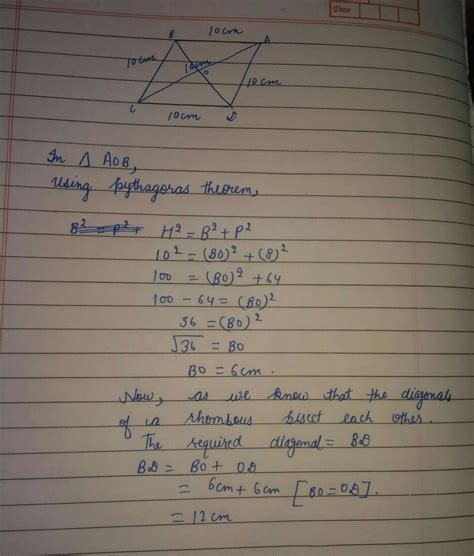 Date
10cm
B
A
10cm
10cm
O
10cm
C
10cm
D
In Δ AOB,
using pythagoras theorem,
B² = P² + H² = B² + P²
10² = (BO)² + (8)²
100 = (BO)² + 64
100 - 64 = (BO)²
36 = (BO)²
√36 = BO
BO = 6cm.
Now, as we know that the diagonals
of a rhombous bisect each other.
The required diagonal = BD
BD = BO + OD
= 6cm + 6cm [BO = OD].
= 12cm